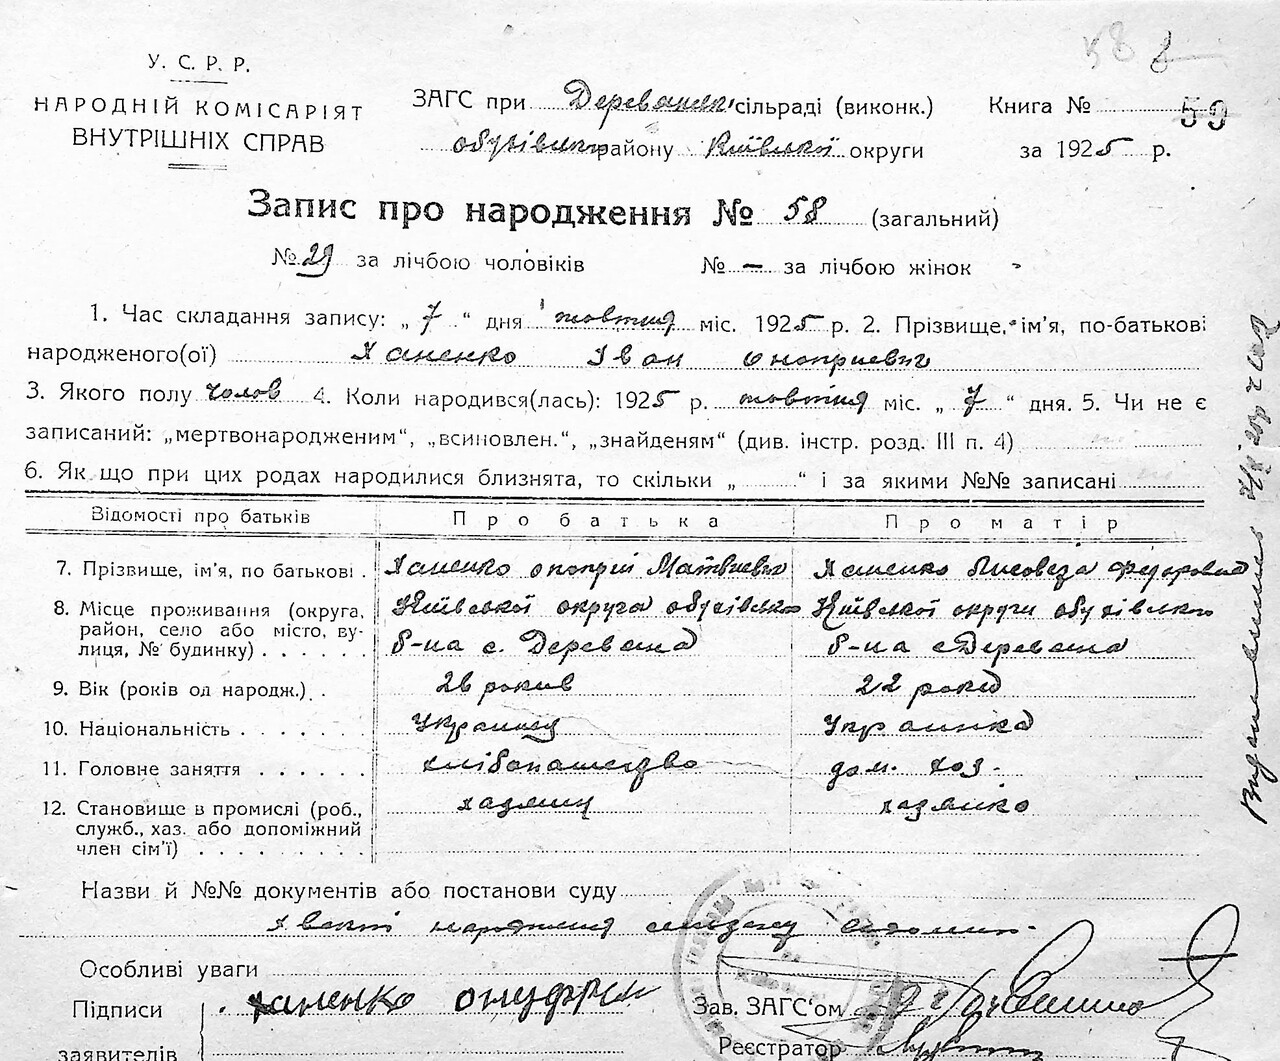 58
У. С. Р. Р.
НАРОДНІЙ КОМІСАРІЯТ
ВНУТРІШНІХ СПРАВ
ЗАГС при Деревянск. сільраді (виконк.)
Обухівськ району Київської округи
Книга № 59
за 1925 р.
Запис про народження № 58 (загальний)
№ 29 за лічбою чоловіків № — за лічбою жінок
1. Час складання запису: „ 7 “ дня жовтня міс. 1925 р. 2. Прізвище, ім'я, по-батькові
народженого(ої) Ханенко Іван Оноприевич
3. Якого полу чолов 4. Коли народився(лась): 1925 р. жовтня міс. „ 7 “ дня. 5. Чи не є
записаний: „мертвонародженим“, „всиновлен.“, „знайденям“ (див. інстр. розд. III п. 4)
6. Як що при цих родах народилися близнята, то скільки „ “ і за якими №№ записані
Відомості про батьків Про батька Про матір
7. Прізвище, ім'я, по батькові . Ханенко Оноприй Матвиевич Ханенко Лисовета Федоровна
8. Місце проживання (округа, Київської округа обухівсько Київської округи обухівсько
район, село або місто, ву-
лиця, № будинку) . . . . . р-на с. Деревяна р-на с Деревяна
9. Вік (років од народж.) . 26 років 22 роки
10. Національність . . . . . . . Украинец Украинка
11. Головне заняття . . . . . . хлібопашество дом. хоз.
12. Становище в промислі (роб., хазяин хазяйко
служб., хаз. або допоміжний
член сім'ї) . . . . . . . . .
Назви й №№ документів або постанови суду
народження
Особливі уваги
Підписи Ханенко Онуфрій Зав. ЗАГС'ом
заявителів Реєстратор